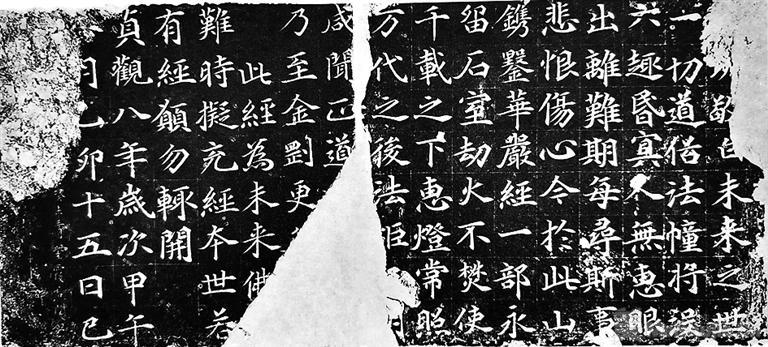 敬白未来之世
一切道俗法幢将没
六趣昏冥人無惠眼
出離難期每尋斯事
悲恨傷心今於此山
鐫鑿華嚴經一部永
留石室劫火不焚使
千載之下惠燈常照
万代之後法炬明
咸聞正道
乃至金剛更
此經為未来佛
難時擬充經夲世若
有經願勿輙開
貞觀八年歲次甲午
月乙卯十五日已